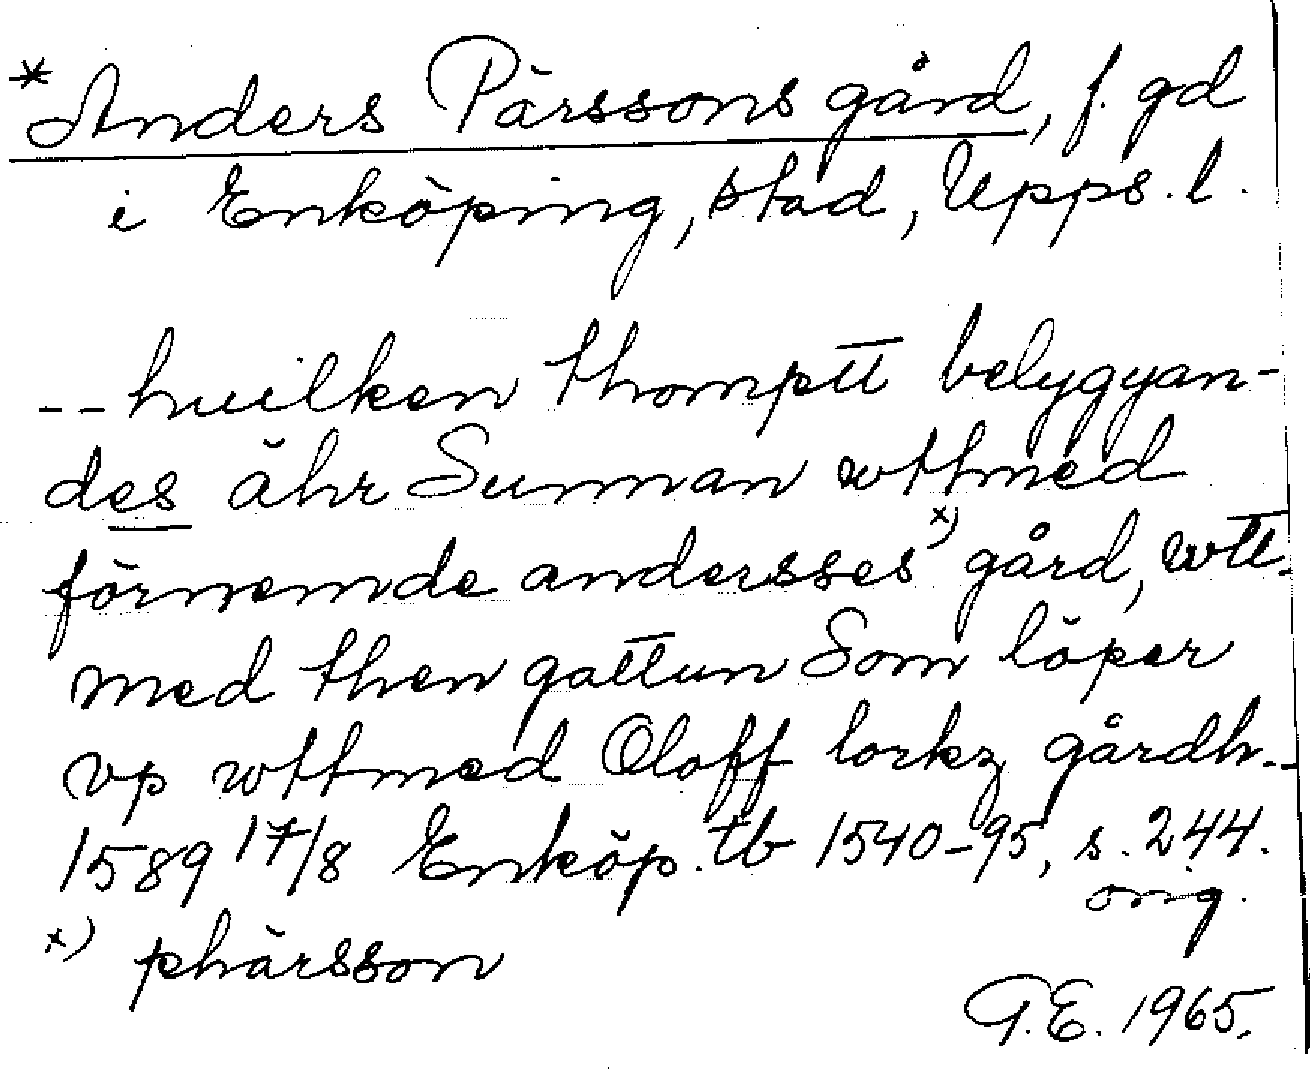 *Anders Pärssons gård, f. gd
i Enköping, stad, Upps. l.
-- huilken thomptt belygyan-
des ähr Sunnan wttmed
förnemde andersses x) gård, wtt-
med then gattun Som löper
vp wttmed Oloff lorkz gårdh--
1589 17/8 Enköp. tb 1540-95, s. 244.
orig.
x) phärsson
G.E. 1965.